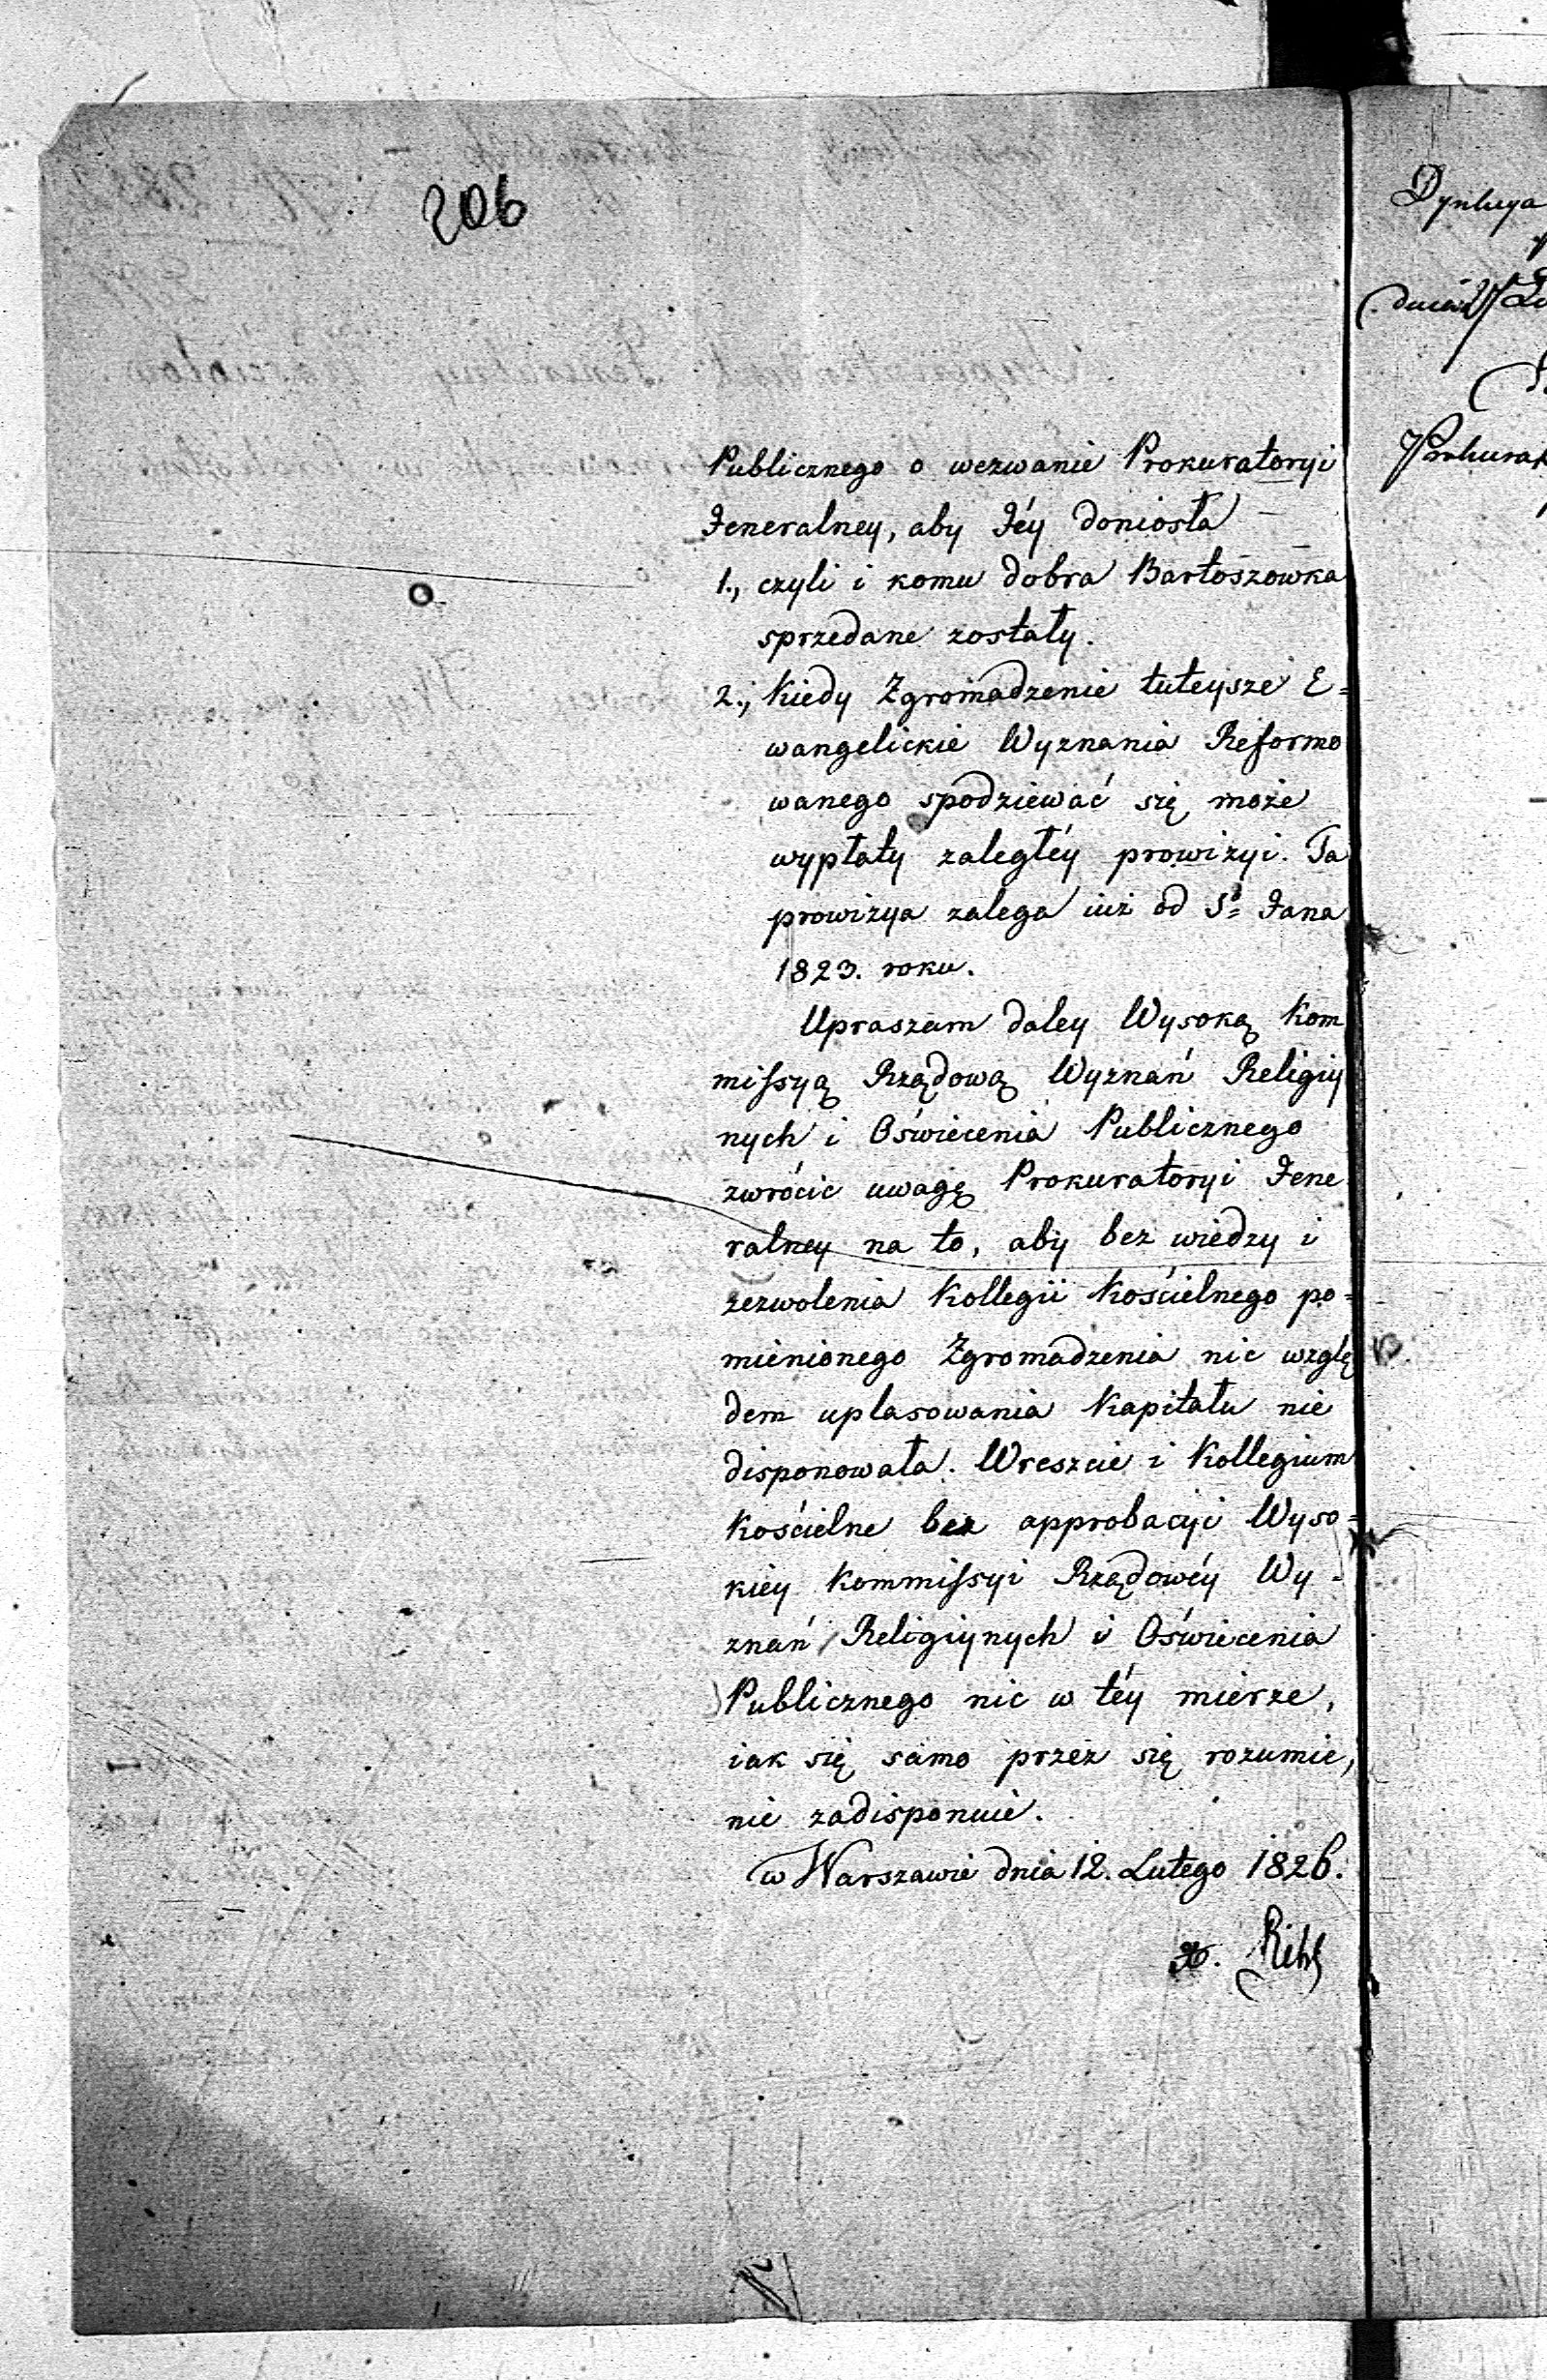 206
Publicznego o wezwanie Prokuratoryi
Jeneralney, aby Jéy doniosła
1., czyli i komu dobra Bartoszowka
sprzedane zostały.
2., Kiedy Zgromadzenie tuteysze E=
wangelickie Wyznania Reformo
wanego spodziewać się może
wypłaty zaległéy prowizyi. Ta
prowizya zalega iuż od Sº Jana
1823. roku.
Upraszam daley Wysoką Kom
missyą Rządową Wyznań Religiy
nych i Oświecenia Publicznego
zwrócic uwagę Prokuratoryi Jene
ralney na to, aby bez wiedzy i
zezwolenia Kollegii Kościelnego po=
mienionego Zgromadzenia nic wzglę
dem uplasowania Kapitału nie
disponowała. Wreszcie i Kollegium
Kościelne bez approbacyi Wyso=
kiey Kommissyi Rządowéy Wy=
znań Religiynych i Oświecenia
Publicznego nic w téy mierze,
iak się samo przez się rozumie,
nie zadisponuie.
w Warszawie dnia 12. Lutego 1826.